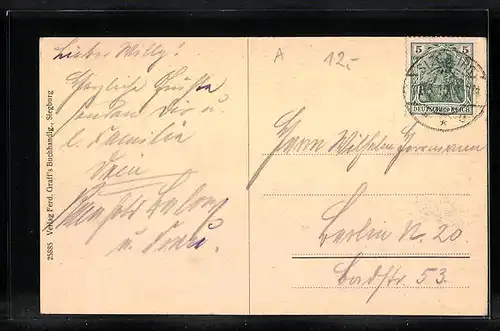 Lieber Willy!
Herzliche Grüße
senden Dir u.
l. Familie
Dein
u. Frau.
A 12,-
5 5
DEUTSCHES REICH
Herrn Wilhelm
Berlin N. 20
Badstr. 53.
25885 Verlag Ferd. Graff's Buchhandlg., Siegburg